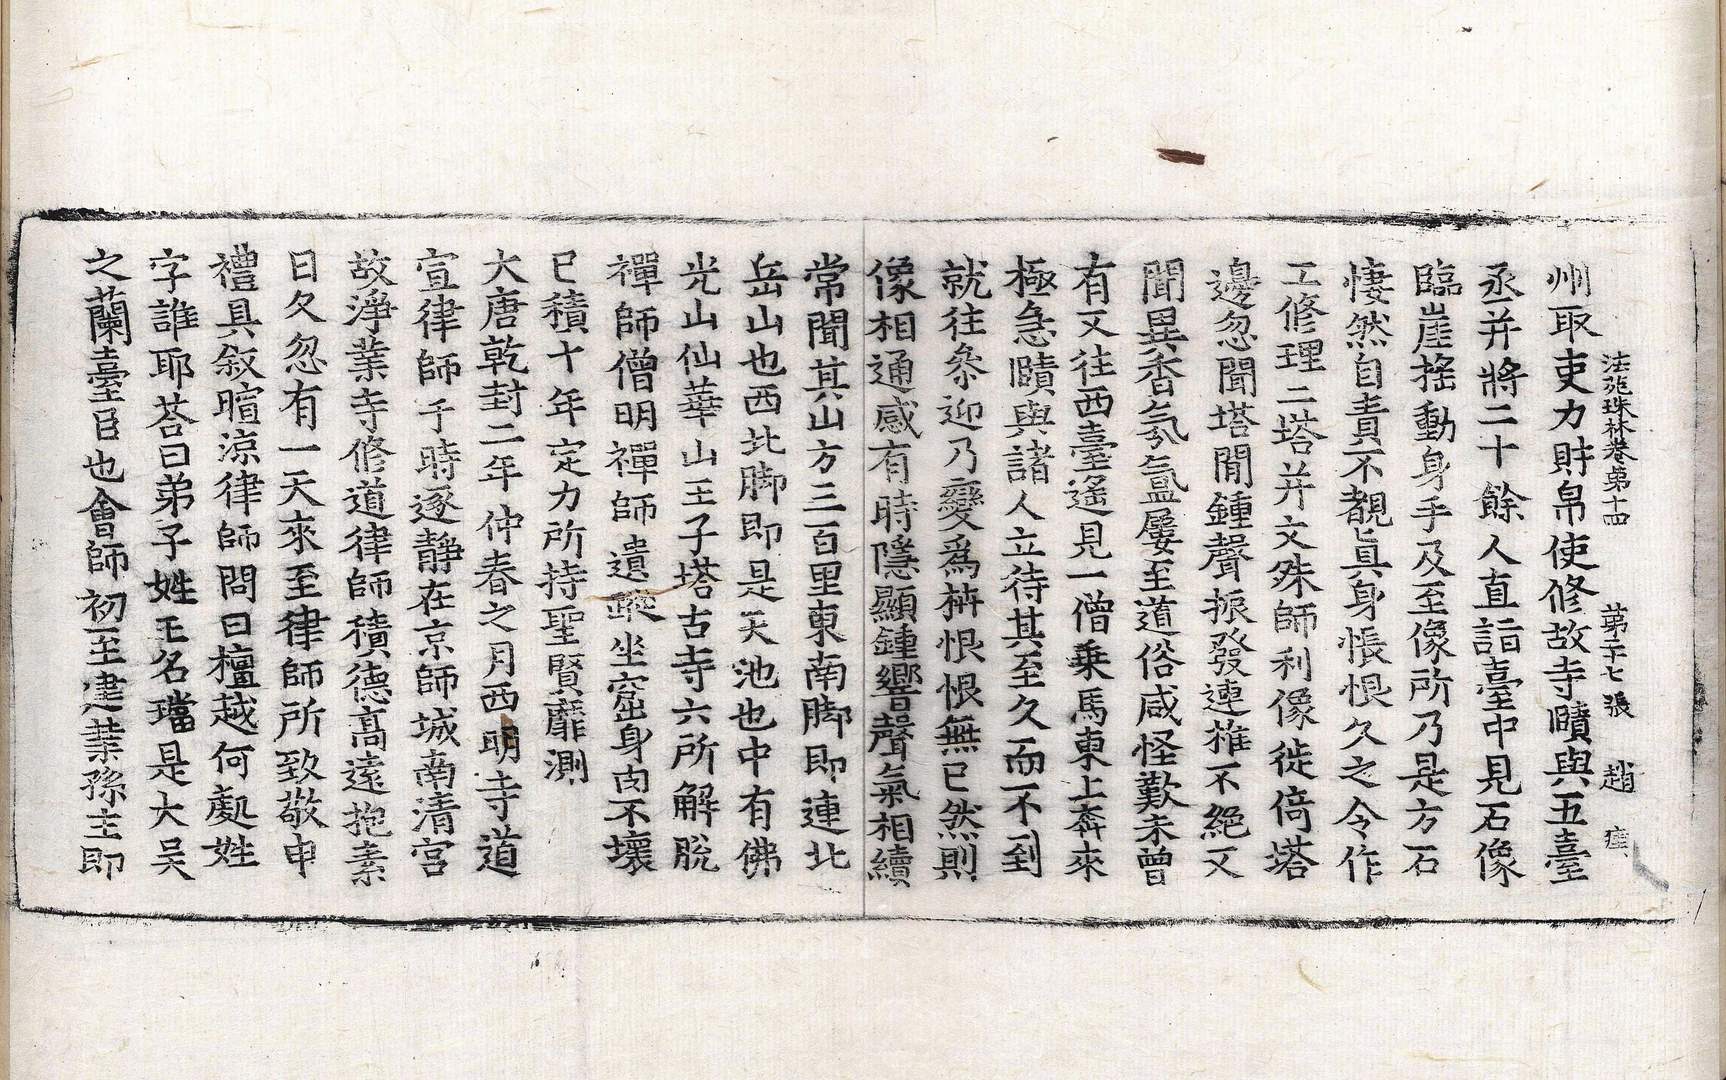 法苑珠林卷第十四 第二十七張 趙
州取吏力財帛使修故寺賾與五臺
丞并將二十餘人直詣臺中見石像
臨崖搖動身手及至像所乃是方石
悽然自責不覩真身悵恨久之令作
工修理二塔并文殊師利像徙倚塔
邊忽聞塔閒鍾聲振發連推不絕又
聞異香氛氳屢至道俗咸怪歎未曾
有又往西臺遙見一僧乗馬東上奔來
極急賾與諸人立待其至久而不到
就往叅迎乃變爲枿恨恨無已然則
像相通感有時隱顯鍾響聲氣相續
常聞其山方三百里東南脚即連北
岳山也西北脚即是天池也中有佛
光山仙華山王子塔古寺六所解脫
禪師僧明禪師遺蹤坐窟身肉不壞
已積十年定力所持聖賢靡測
大唐乾封二年仲春之月西明寺道
宣律師于時逐靜在京師城南清宮
故淨業寺修道律師積德高遠抱素
日久忽有一天來至律師所致敬申
禮具叙暄涼律師問曰檀越何處姓
字誰耶荅曰弟子姓王名璠是大吳
之蘭臺臣也會師初至建業孫主即